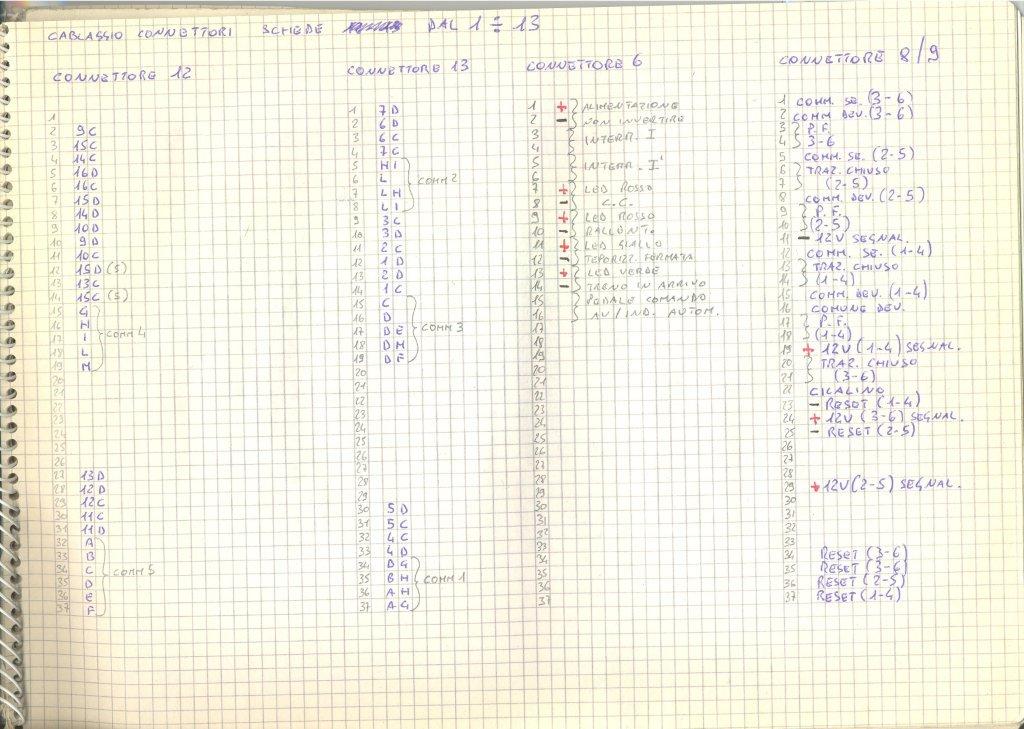 CABLAGGIO CONNETTORI SCHEDE DAL 1 ÷ 13
CONNETTORE 12
1
2 9C
3 15C
4 14C
5 16D
6 16C
7 15D
8 14D
9 10D
10 9D
11 10C
12 15D (5)
13 13C
14 15C (5)
15 G
16 H
17 I COMM 4
18 L
19 M
20
21
22
23
24
25
26
27 13D
28 12D
29 12C
30 11C
31 11D
32 A
33 B
34 C COMM 5
35 D
36 E
37 F
CONNETTORE 13
1 7D
2 6D
3 6C
4 7C
5 HI
6 L COMM 2
7 LH
8 LI
9 3C
10 3D
11 2C
12 1D
13 2D
14 1C
15 C
16 D
17 DE COMM 3
18 DH
19 DF
20
21
22
23
24
25
26
27
28
29
30 5D
31 5C
32 4C
33 4D
34 BG
35 BH COMM 1
36 AH
37 AG
CONNETTORE 6
1 + ALIMENTAZIONE
2 - NON INVERTIRE
3 INTERR. I
4
5 INTERR. I'
6
7 + LED ROSSO
8 - C.C.
9 + LED ROSSO
10 - RALLENT.
11 + LED GIALLO
12 - TEPORIZZ. FERMATA
13 + LED VERDE
14 - TRENO IN ARRIVO
15 PEDALE COMANDO
16 AV/IND. AUTOM.
17
18
19
20
21
22
23
24
25
26
27
28
29
30
31
32
33
34
35
36
37
CONNETTORE 8/9
1 COMM. SE. (3-6)
2 COMM DEV. (3-6)
3 P.F.
4 3-6
5 COMM. SE. (2-5)
6 TRAZ. CHIUSO
7 (2-5)
8 COMM. DEV. (2-5)
9 P.F.
10 (2-5)
11 - 12V SEGNAL.
12 COMM. SE. (1-4)
13 TRAZ. CHIUSO
14 (1-4)
15 COMM. DEV. (1-4)
16 COMUNE DEV.
17 P.F.
18 (1-4)
19 + 12V (1-4) SEGNAL.
20 TRAZ. CHIUSO
21 (3-6)
22 CICALINO
23 - RESET (1-4)
24 + 12V (3-6) SEGNAL.
25 - RESET (2-5)
26
27
28
29 + 12V (2-5) SEGNAL.
30
31
32
33
34 RESET (3-6)
35 RESET (3-6)
36 RESET (2-5)
37 RESET (1-4)